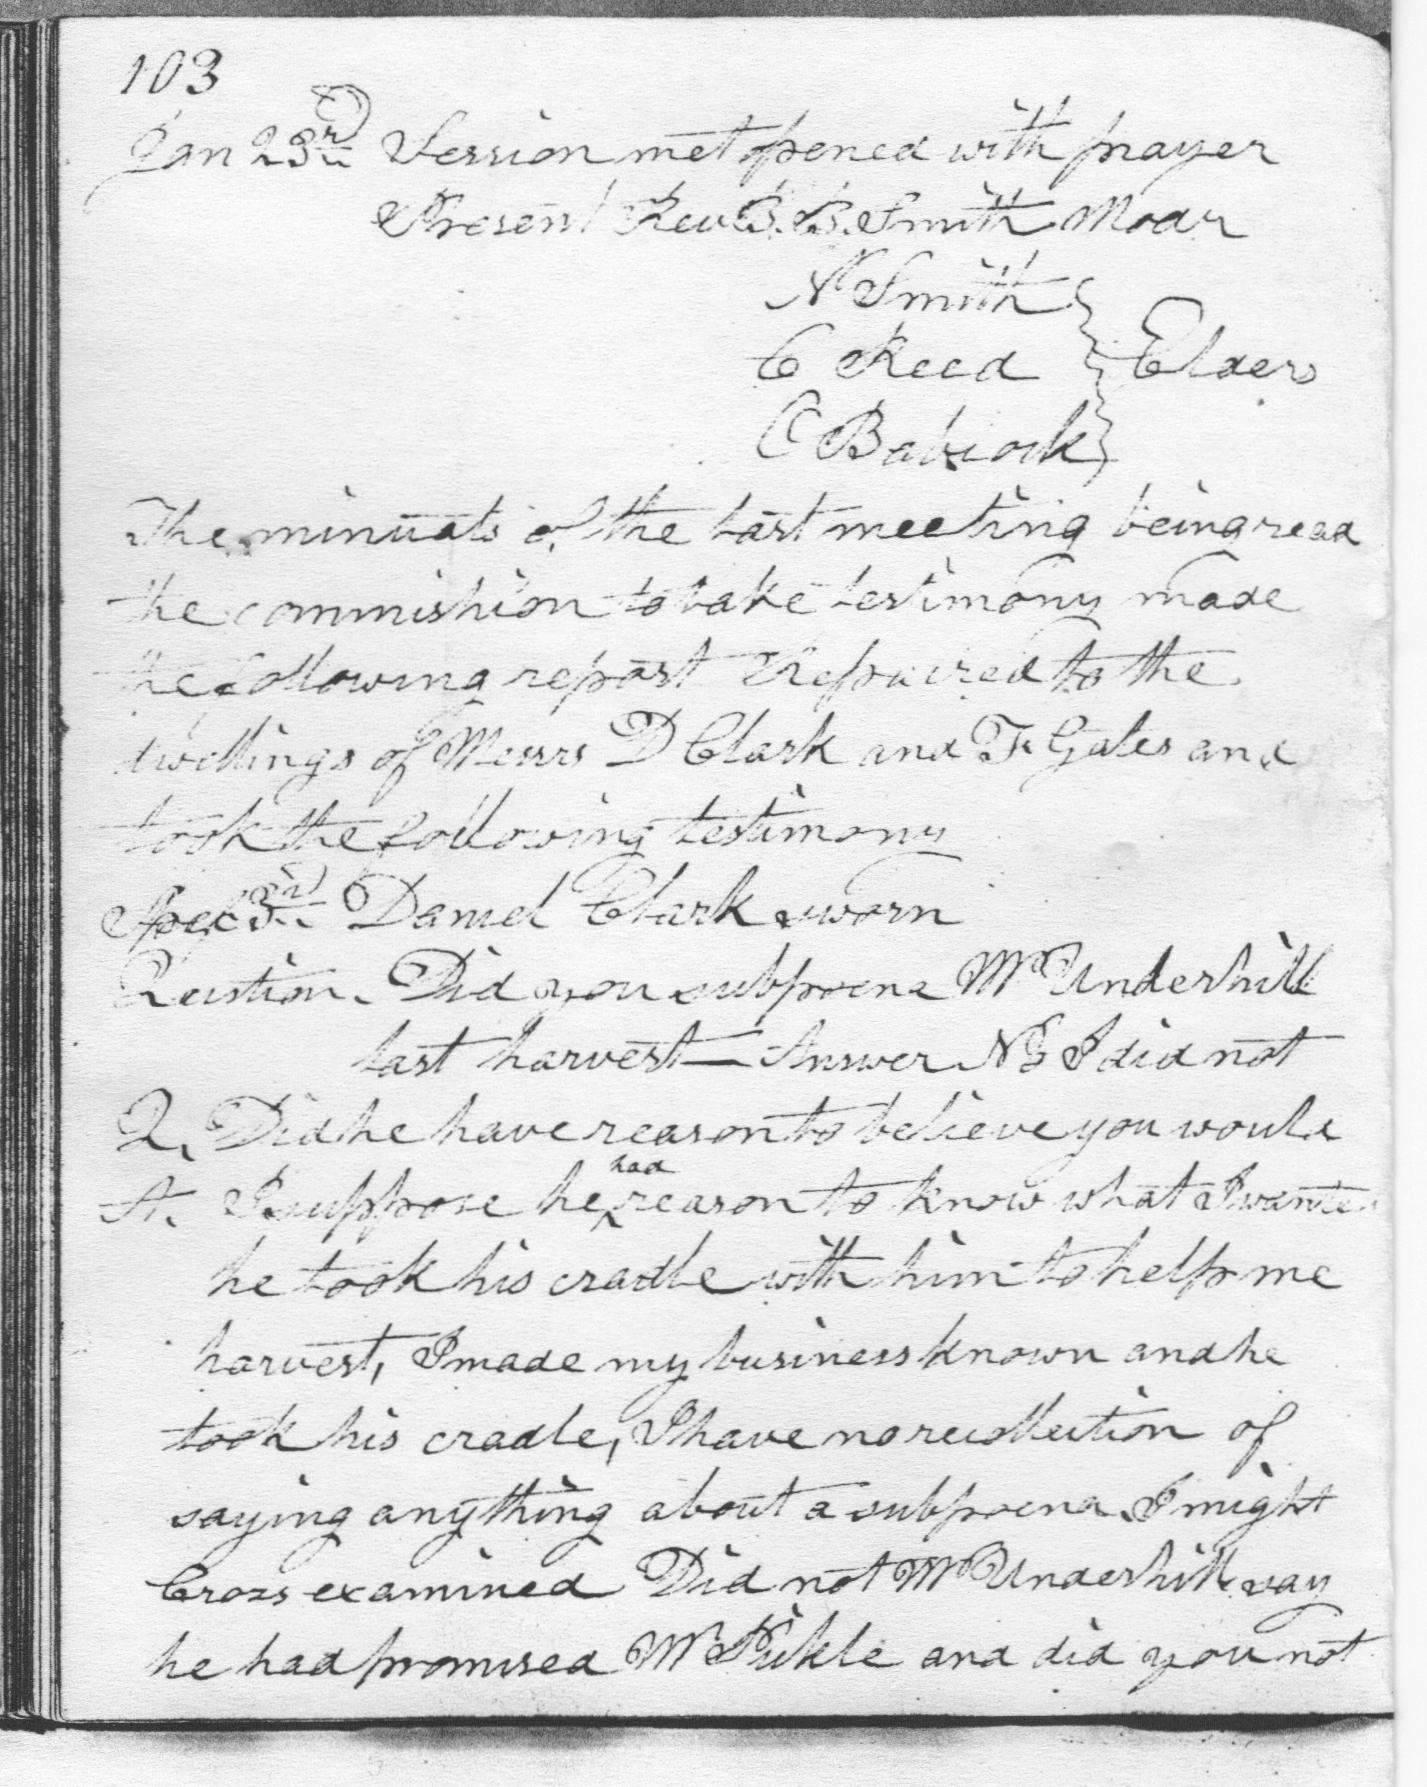 103
Jan 23rd Session met opened with prayer
Present Rev B. B. Smith Modr
N Smith
C Reed } Elders
C Babcock
The minuats of the last meeting being read
the commishion to take testimony made
the following report Repaired to the
dwellings of Messrs D Clark and F Gates and
took the following testimony
Spec 3rd Daniel Clark sworn
Question. Did you subpoena Mr Underhill
last harvest — Answer No I did not
Q, Did he have reason to believe you would
A. I suppose he had reason to know what I wanted
he took his cradle with him to help me
harvest, I made my business known and he
took his cradle, I have no recollection of
saying anything about a subpoena. I might
Cross examined Did not Mr Underhill say
he had promised Mr Pikle and did you not